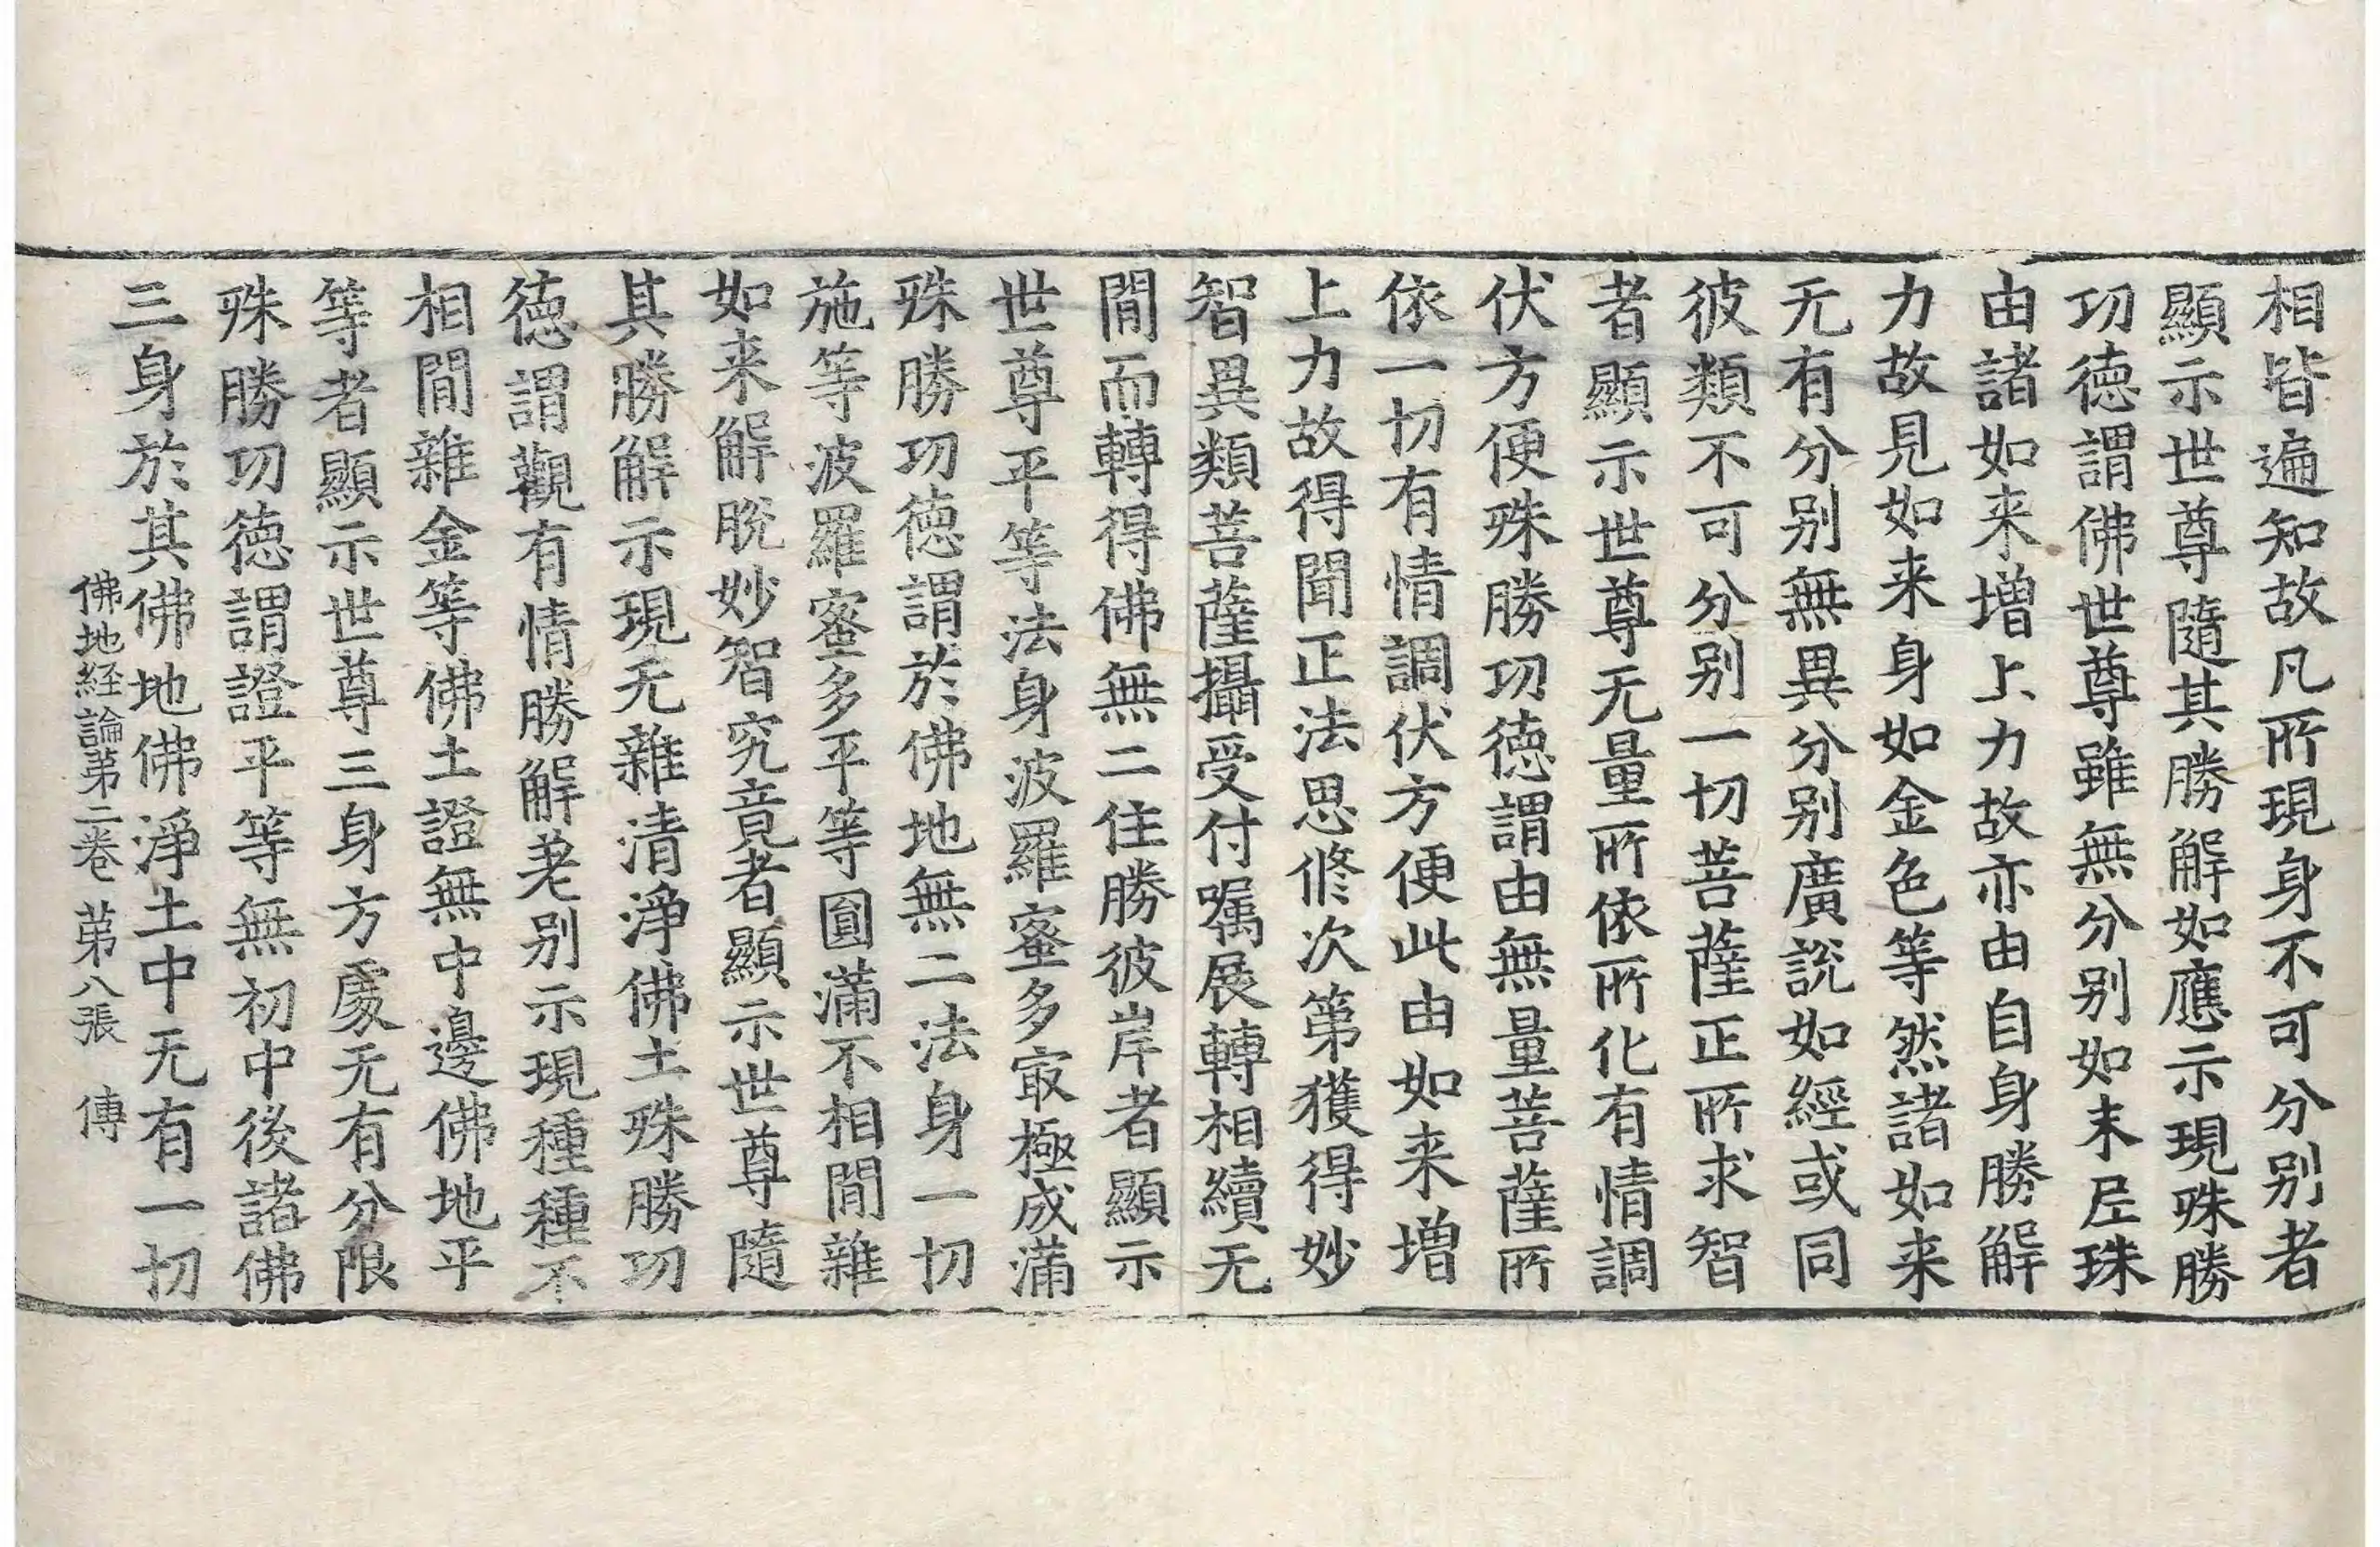 相皆遍知故凡所現身不可分别者
顯示世尊隨其勝解如應示現殊勝
功德謂佛世尊雖無分别如末尼珠
由諸如来增上力故亦由自身勝解
力故見如来身如金色等然諸如来
无有分别無異分别廣說如經或同
彼類不可分别一切菩薩正所求智
者顯示世尊无量所依所化有情調
伏方便殊勝功德謂由無量菩薩所
依一切有情調伏方便此由如来增
上力故得聞正法思修次第獲得妙
智異類菩薩攝受付囑展轉相續无
間而轉得佛無二住勝彼岸者顯示
世尊平等法身波羅蜜多㝡極成滿
殊勝功德謂於佛地無二法身一切
施等波羅蜜多平等圓滿不相間雜
如来解脫妙智究竟者顯示世尊隨
其勝解示現无雜清淨佛土殊勝功
德謂觀有情勝解差别示現種種不
相間雜金等佛土證無中邊佛地平
等者顯示世尊三身方處无有分限
殊勝功德謂證平等無初中後諸佛
三身於其佛地佛淨土中无有一切
佛地経論第二卷 第八張 傳